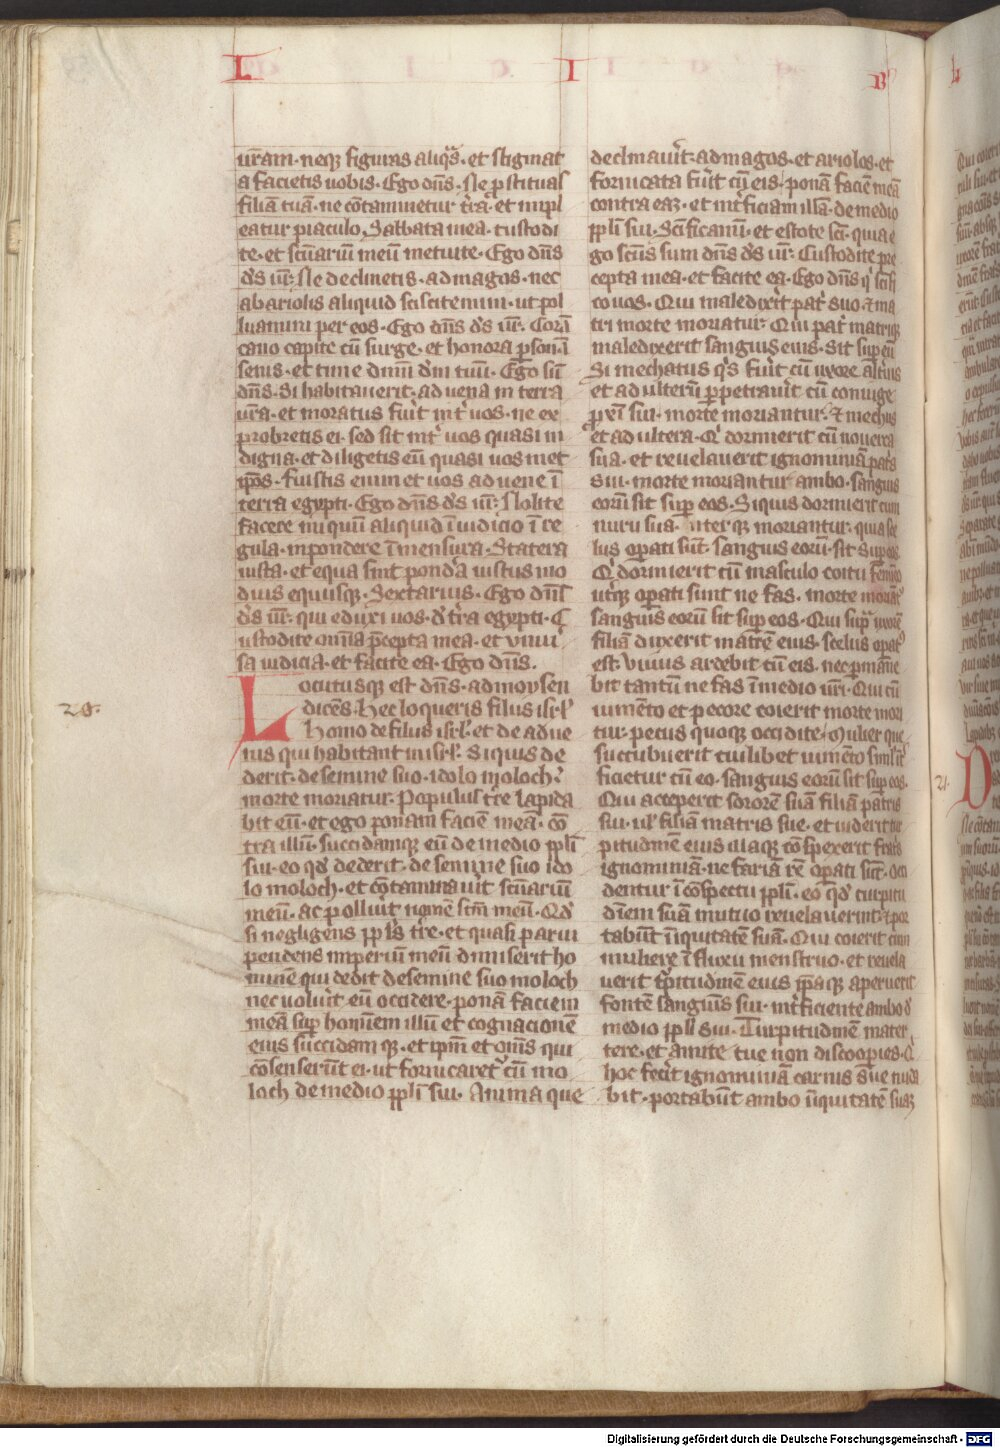 L I B
uram· neq; figuras aliqͣs· et stigmat
a facietis uobis· Ego dn̄s· Ne ꝓstituas
filiā tuā· ne cōtaminetur tr̄a· et impl
eatur piaculo· Sabbata mea· custodi
te· et sc̄uariū meū metuite· Ego dn̄s
d̄s ur̄· Ne declinetis· ad magos· nec
ab ariolis aliquid sciscitemini· ut pol
luamini per eos· Ego dn̄s d̄s ur̄· Corā
cano capite cū surge· et honora ꝑsonā
senis· et time dnm̄ dm̄ tuū· Ego sū
dn̄s· Si habitauerit· aduena in terra
ur̄a· et moratus fuit̄ int̄ uos· ne ex
probretis ei· sed sit int̄ uos quasi in
digna· et diligetis eū quasi uos met
ip̄os· Fuistis enim et uos aduene ī
terra egypti· Ego dn̄s d̄s ur̄· Nolite
facere iniquū aliquid ī iudicio ī re
gula· in pondere ī mensura· Statera
iusta· et equa sint pond̄a iustus mo
dius equusq;· Sextarius· Ego dn̄s
d̄s ur̄· qui eduxi uos· d̄ tr̄a egypti· C
ustodite om̄ia p̄cepta mea· et uniu͛
sa iudicia· et facite ea· Ego dn̄s·
Locutusq; est dn̄s· ad moysen
20·
dicēs· Hec loqueris filiis isrl̄
Homo de filiis isrl̄· et de adue
nis qui habitant in isrl̄· Si quis de
derit· de semine suo· idolo moloch·
morte moriatur· Populus tr̄e lapida
bit eū· et ego ponam faciē meā· cō
tra illū· succidamq; eū de medio ppl̄i
sui· eo qd̄ dederit· de semine suo ido
lo moloch· et cōtaminauit sc̄uariū
meū· ac polluit̄ nomē sc̄m meū· Qd̄
si negligens ppl̄s tr̄e· et quasi parui
pendens imperiū meū dimiserit ho
minē qui dedit de semine suo moloch
nec uoluit̄ eū occidere· ponā faciem
meā suꝑ hominem illū et cognacionē
eius succidamq;· et ipm̄ et om̄s qui
cōsenser̄t ei· ut fornicaret͛ cū mo
loch de medio ppl̄i sui· Anima que
declinauit̄· ad magos· et ariolos· et
fornicata fuit̄ cū eis· ponā faciē meā
contra eaꝫ· et int̄ficiam illā· de medio
ppl̄i sui· Sc̄ificamī· et estote sc̄i· quia e
go sc̄us sum dn̄s d̄s ur̄· Custodite pre
cepta mea· et facite ea· Ego dn̄s q̄ sc̄ifi
co uos· Qui maledixit̄ pat͛ suo· et ma
tri morte moriatur· Qui pat͛ matriq;
maledixerit sanguis eius· sit suꝑ eū
Si mechatus q̄s fuit̄ cū uxore alt͛ius
et adulteriū ꝑpetrauit̄ cū coniuge
ꝓxī sui· morte moriantur· et mechus
et adultera· Qͥ dormierit cū nouerca
sua· et reuelauerit ignominiā pat͛s
sui· morte moriantur ambo· sanguis
eorū sit suꝑ eos· Si quis dormierit cum
nuru sua· uterq; moriantur· quia sce
lus oꝑati sūt· sanguis eorū· sit suꝑ eos·
Qͥ dormierit cū masculo coitu femīeo
ut͛q; oꝑati sunt ne fas· morte moriāt͛
sanguis eorū sit suꝑ eos· Qui suꝑ uxorē
filiā duxerit matrē eius· scelus oꝑat͛
est· uiuus ardebit cū eis· nec ꝑmane
bit tantū ne fas ī medio ur̄i· Qui cū
iumēto et pecore coierit morte mori
tur· pecus quoq; occidite· Mulier que
succubuerit cuilibet iumēto siml̄ īt͛
ficietur cū eo· sanguis eorū sit suꝑ eos·
Qui acceperit sororē suā filiā patris
sui· ul̄ filiā matris sue· et uiderit tur
pitudinē eius illaq; cōspexerit fr̄is
ignominiā· ne fariā rē oꝑati sūt· occi
dentur ī cōspectu ppl̄i· eo qd̄ turpitu
dinem suā mutuo reuelauerint· et por
tabūt īiquitatē suā· Qui coierit cum
muliere ī fluxu menstruo· et reuela
uerit t͛pitudinē eius ip̄aq; aperuerit
fontē sanguīs sui· int̄ficiente ambo d̄
medio ppl̄i sui· Turpitudinē mater
tere· et amite tue non discoopies· Qͥ
hoc fecit̄ ignominiā carnis sue nuda
bit· portabūt ambo īiquitatē suaꝫ
21·
Digitalisierung gefördert durch die Deutsche Forschungsgemeinschaft - DFG